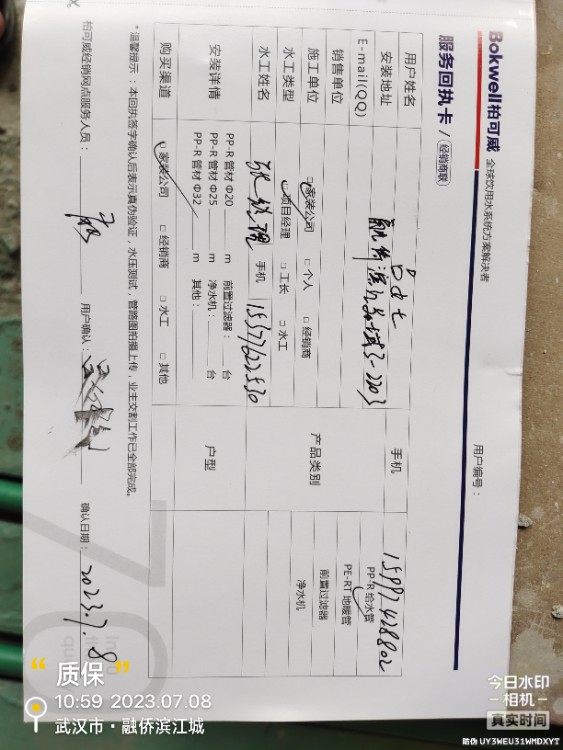 Bokwell柏可威 全球饮用水系统方案解决者
用户编号：
服务回执卡 / 经销商联
用户姓名 手机 15997428802
安装地址 融侨滨江城3-2203
E-mail(QQ)
销售单位 产品类别 PP-R 给水管
PE-RT 地暖管
前置过滤器
净水机
施工单位 □家装公司 □个人 □经销商
水工类型 □项目经理 □工长 □水工
水工姓名 张经理 手机 15577622530
安装详情 PP-R 管材 Φ20 m 前置过滤器： 台
PP-R 管材 Φ25 m 净水机： 台
PP-R 管材 Φ32 m 其他：
户型
购买渠道 □家装公司 □经销商 □水工 □其他
*温馨提示：本回执签字确认后表示真伪验证，水压测试，管路图拍摄上传，业主交割工作已全部完成。
柏可威经销网点服务人员： 用户确认： 确认日期：2023.7.8
“质保”
10:59 2023.07.08
武汉市·融侨滨江城
今日水印
相机
真实时间
防伪 UY3WEU31WMDXYT